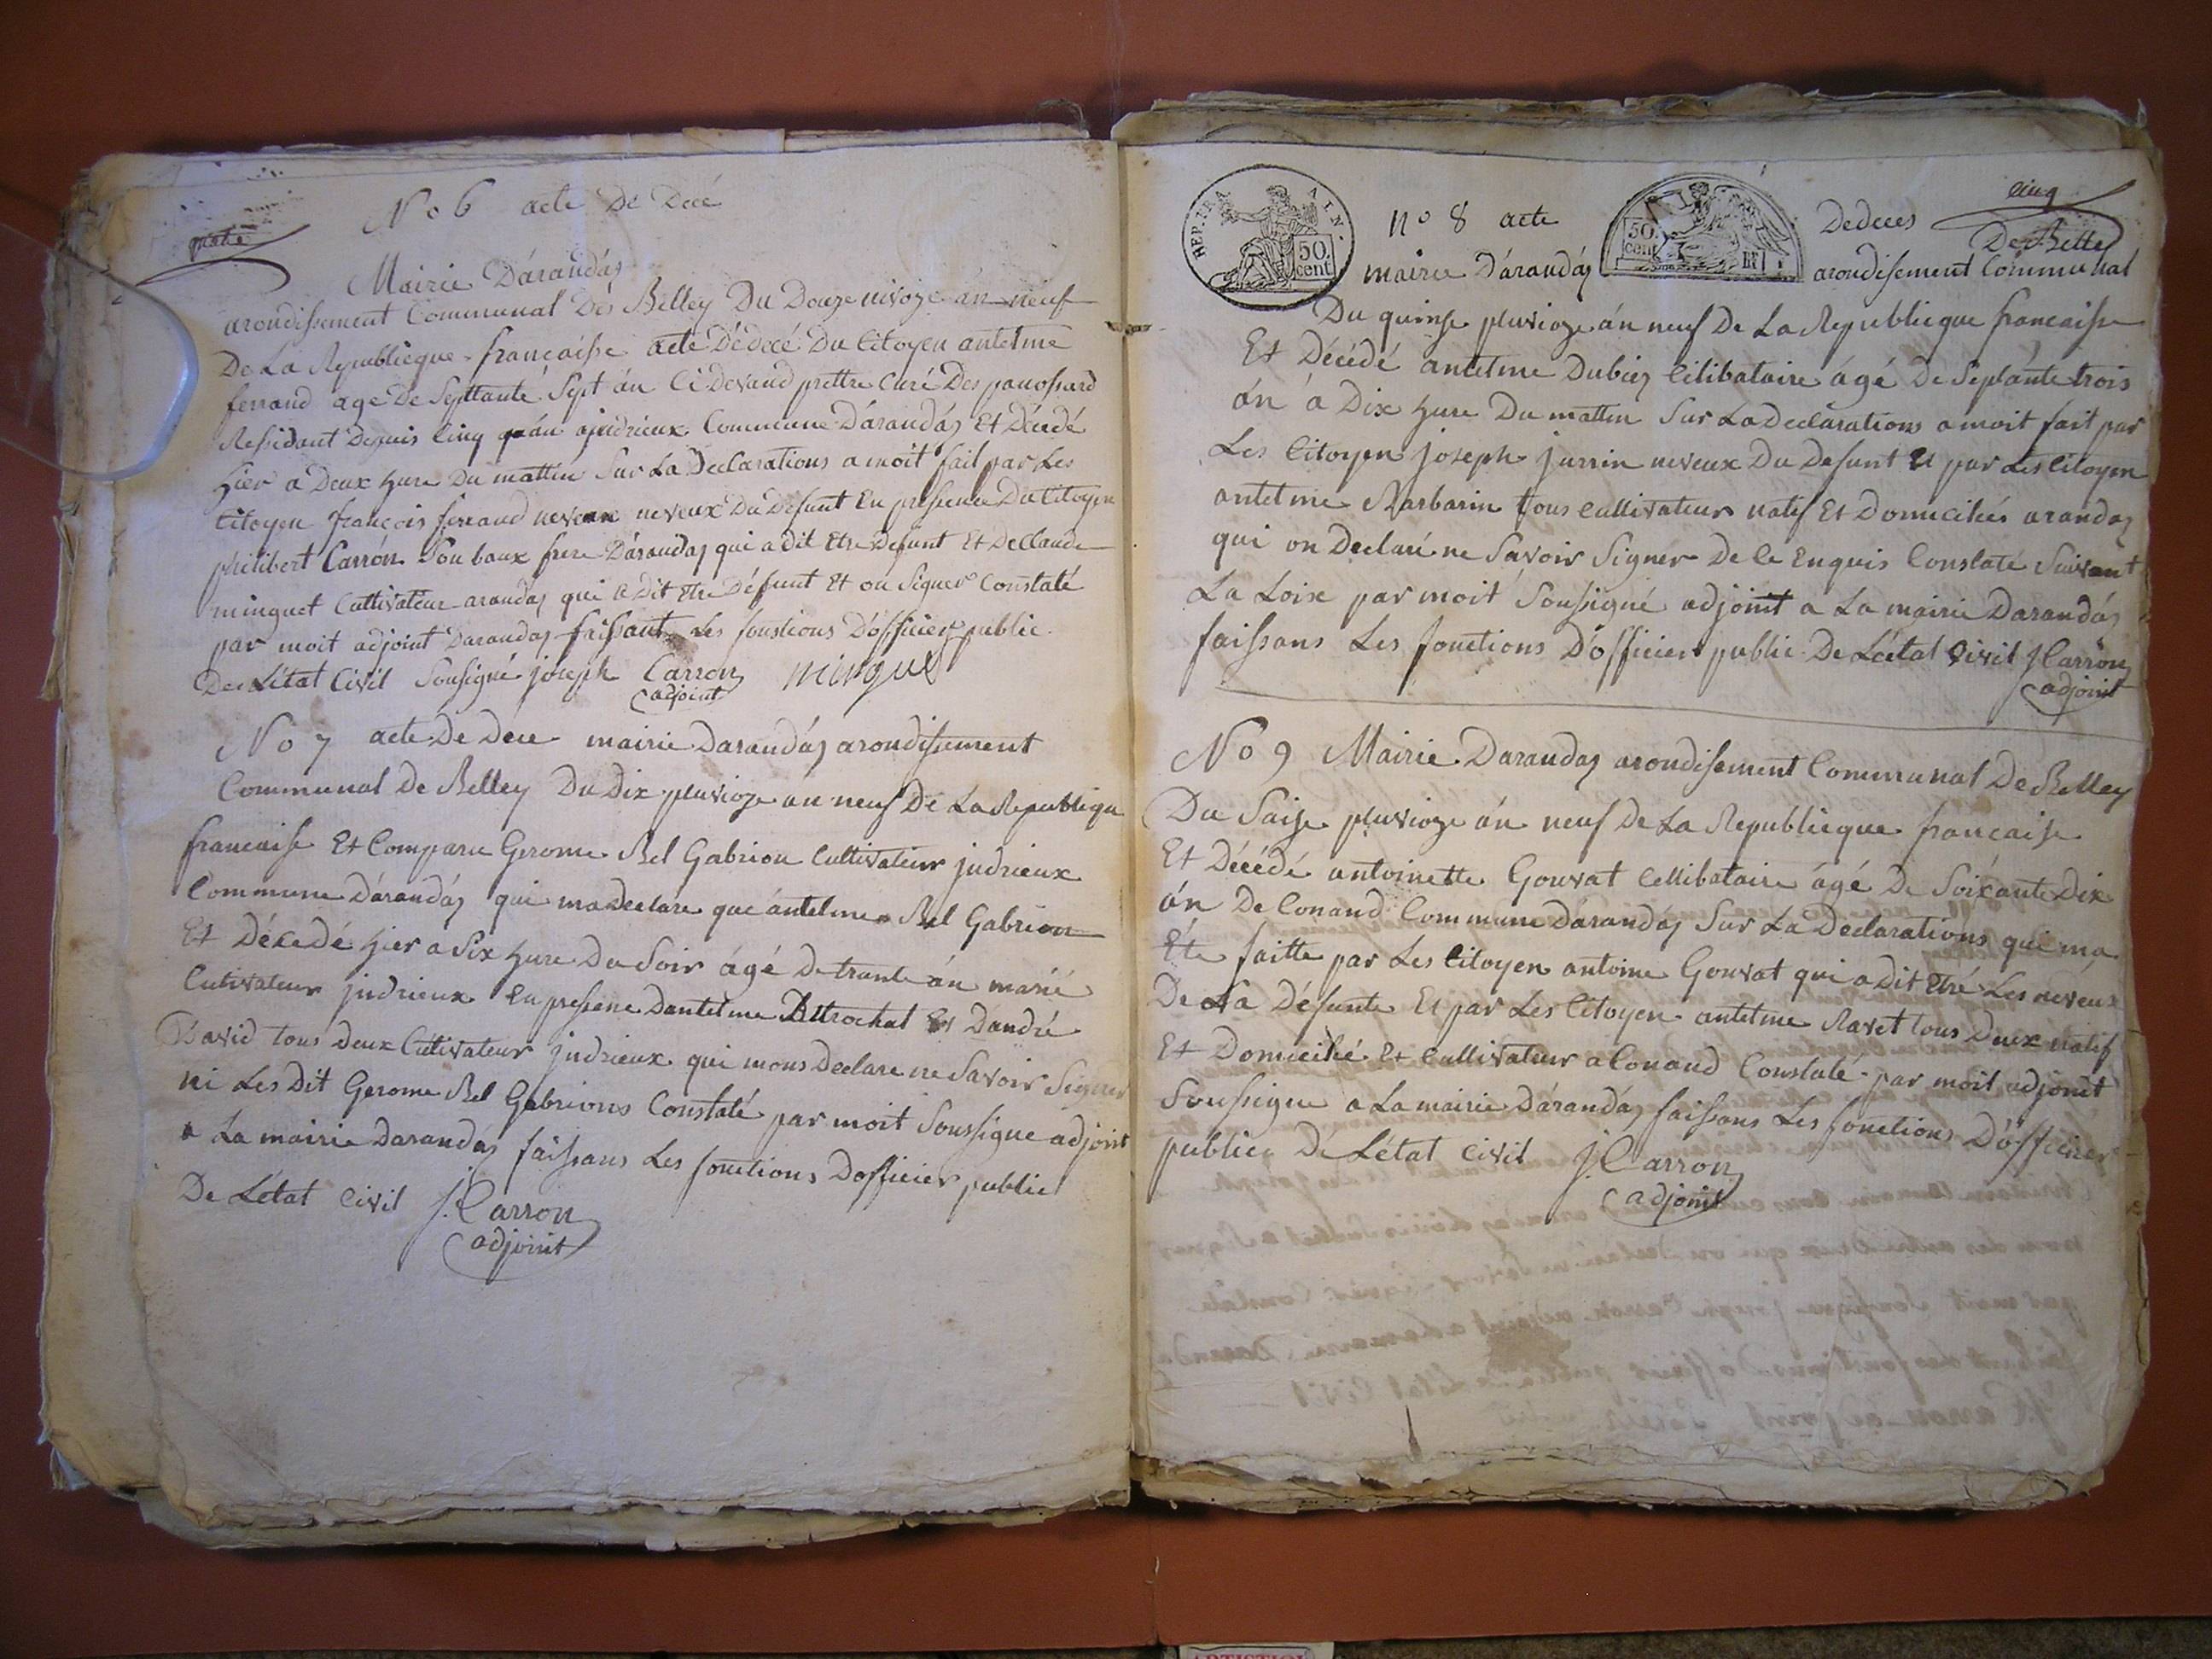 quatre
No 6 acte De Decé
Mairie D'arandas
arondissement Communal Des Belley Du Douze nivoze án neuf
De La Republicque francaisse acte Dédecé Du Citoyen antelme
ferrand age De Septtante Sept án Ci Devand prettre Curé Des panossard
Ressidant Depuis Cinq án ajudrieux Commune D'arandas Et Décédé
hier a Deux hure Du mattin Sur La Declarations a moit fait par Les
Citoyen françois ferraud neveux Du Defunt En pressence Du Citoyen
philibert Carrón Son baux frere D'arandas qui a dit Etre Defunt Et De Claude
minguet Cultivateur arandas qui a Dit Etre Défunt Et on Signer Constaté
par moit adjoint Darandas faissant Les fonstions D'officier public
De L'état Civil Sousigné joseph Carron minguet
adjoint
No 7 acte De Dece mairie Darandás arondissement
Communal De Belley Du Dix pluvioze an neuf De La Republiqu
francaisse Et Comparu Gerome Bel Gabrion Cultivateur judrieux
Commune D'arandás qui ma Declare que ántelme Bel Gabrion
Et Décedé hier a Six hure Du Soir ágé De trante án marié
Cutivateur judrieux En pressence Dantelme Butrochat Et Dandré
David tous Deux Cultivateur judrieux qui mons Declare ne Savoir Signer
ni Les Dit Gerome Bel Gabrions Constaté par moit Soussigne adjoint
a La mairie Darandás faissans Les fonctions Dofficier public
De L'état Civil J. Carron
adjoint
cinq
REP. FRA 50. cent
no 8 acte
50. cent RF
De deces
mairie D'arandás
De Belley
arondissement Communal
Du quinse pluvioze án neuf De La Republicque francaisse
Et Décédé antelme Dubiez Célibataire ágé De Septánte trois
án á Dix hure Du mattin Sur La Declarations a moit fait par
Les Citoyen joseph jurrin neveux Du Defunt Et par Les Citoyen
antelme Barbarin tous Cultivateur natif Et Domiciliés arandas
qui on Declaré ne Savoir Signer De Ce Enquis Constaté Suivant
La Loix par moit Soussigné adjoint a La mairie Darandás
faissans Les fonctions D'officier public De L'état Civil J Carron
adjoint
No 9 Mairie Darandas arondissement Communal De Belley
Du Saise pluvioze án neuf De La Republicque francaise
Et Décédé antoinette Gouvat Cellibataire ágé De Soixante Dix
án De Conand Commune Dárandás Sur La Declarations qui ma
Éte faitte par Les Citoyen antoine Gouvat qui a dit Étré Les neveux
De La Défunte Et par Les Citoyen antelme Ravet tous Deux natif
Et Domicilié Et Cultivateur a Conand Constaté par moit adjoint
Soussigne a La mairie D'arandás faissans Les fonctions D'officier
public De L'état Civil J. Carron
adjoint